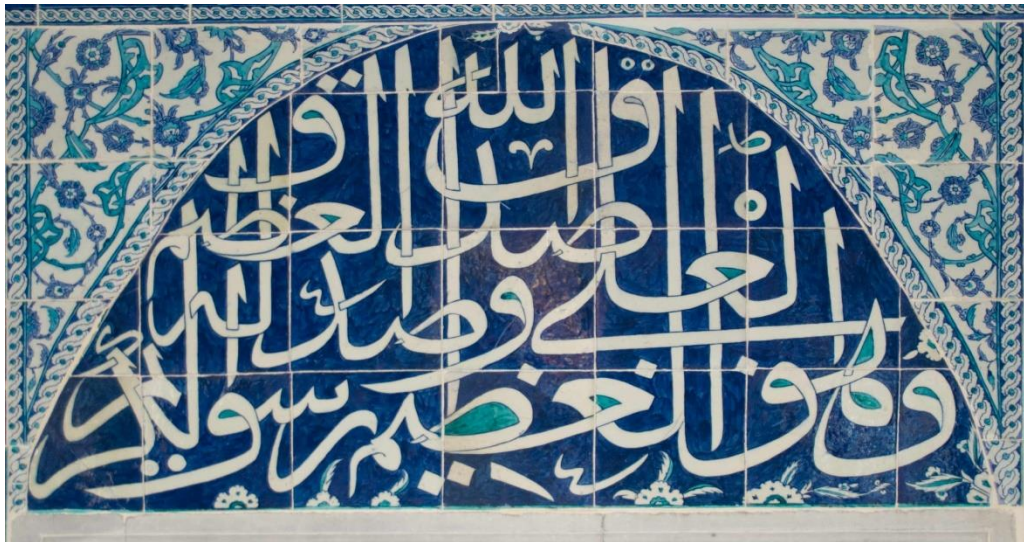 وهو العلي العظيم صدق الله العظيم وصدق رسوله الكريم